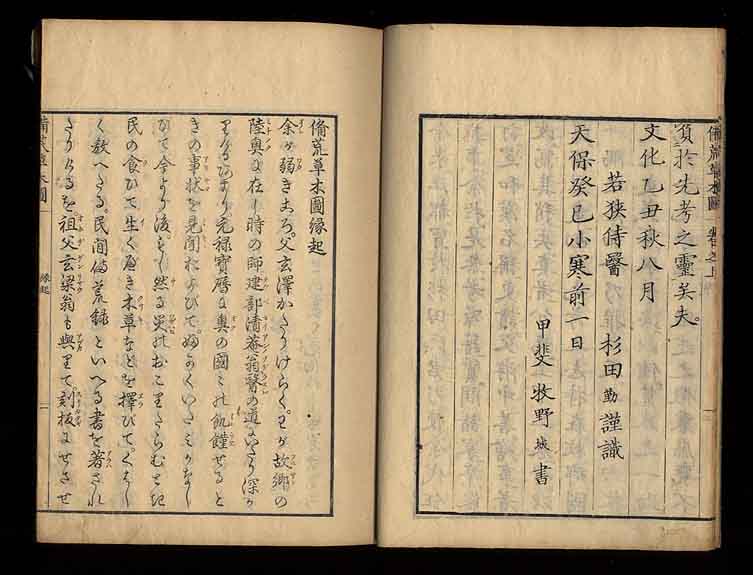 備荒草木圖 卷之上
負於先考之靈矣夫。
文化乙丑秋八月
若狹侍醫 杉田勤謹識
天保癸巳小寒前一日
甲斐 牧野城書
備荒草木圖縁起
余が弱きころ。父玄澤かたりけらく。わが故郷の
陸奥に在し時の師建部清菴翁醫の道にいたり深か
りけるのあまり元禄寶暦に奥の國々の飢饉せると
きの事状を見聞およびて。ふかくいたミかなし
ひて今より後もし然る災のおこりたらむとき
民の食ひて生くべき木草などを擇びて。くはし
く教へたる。民間備荒録といへる書を著され
たりけるを祖父玄梁翁も與りて。刻板にせさせ
備荒草木圖 縁起 一